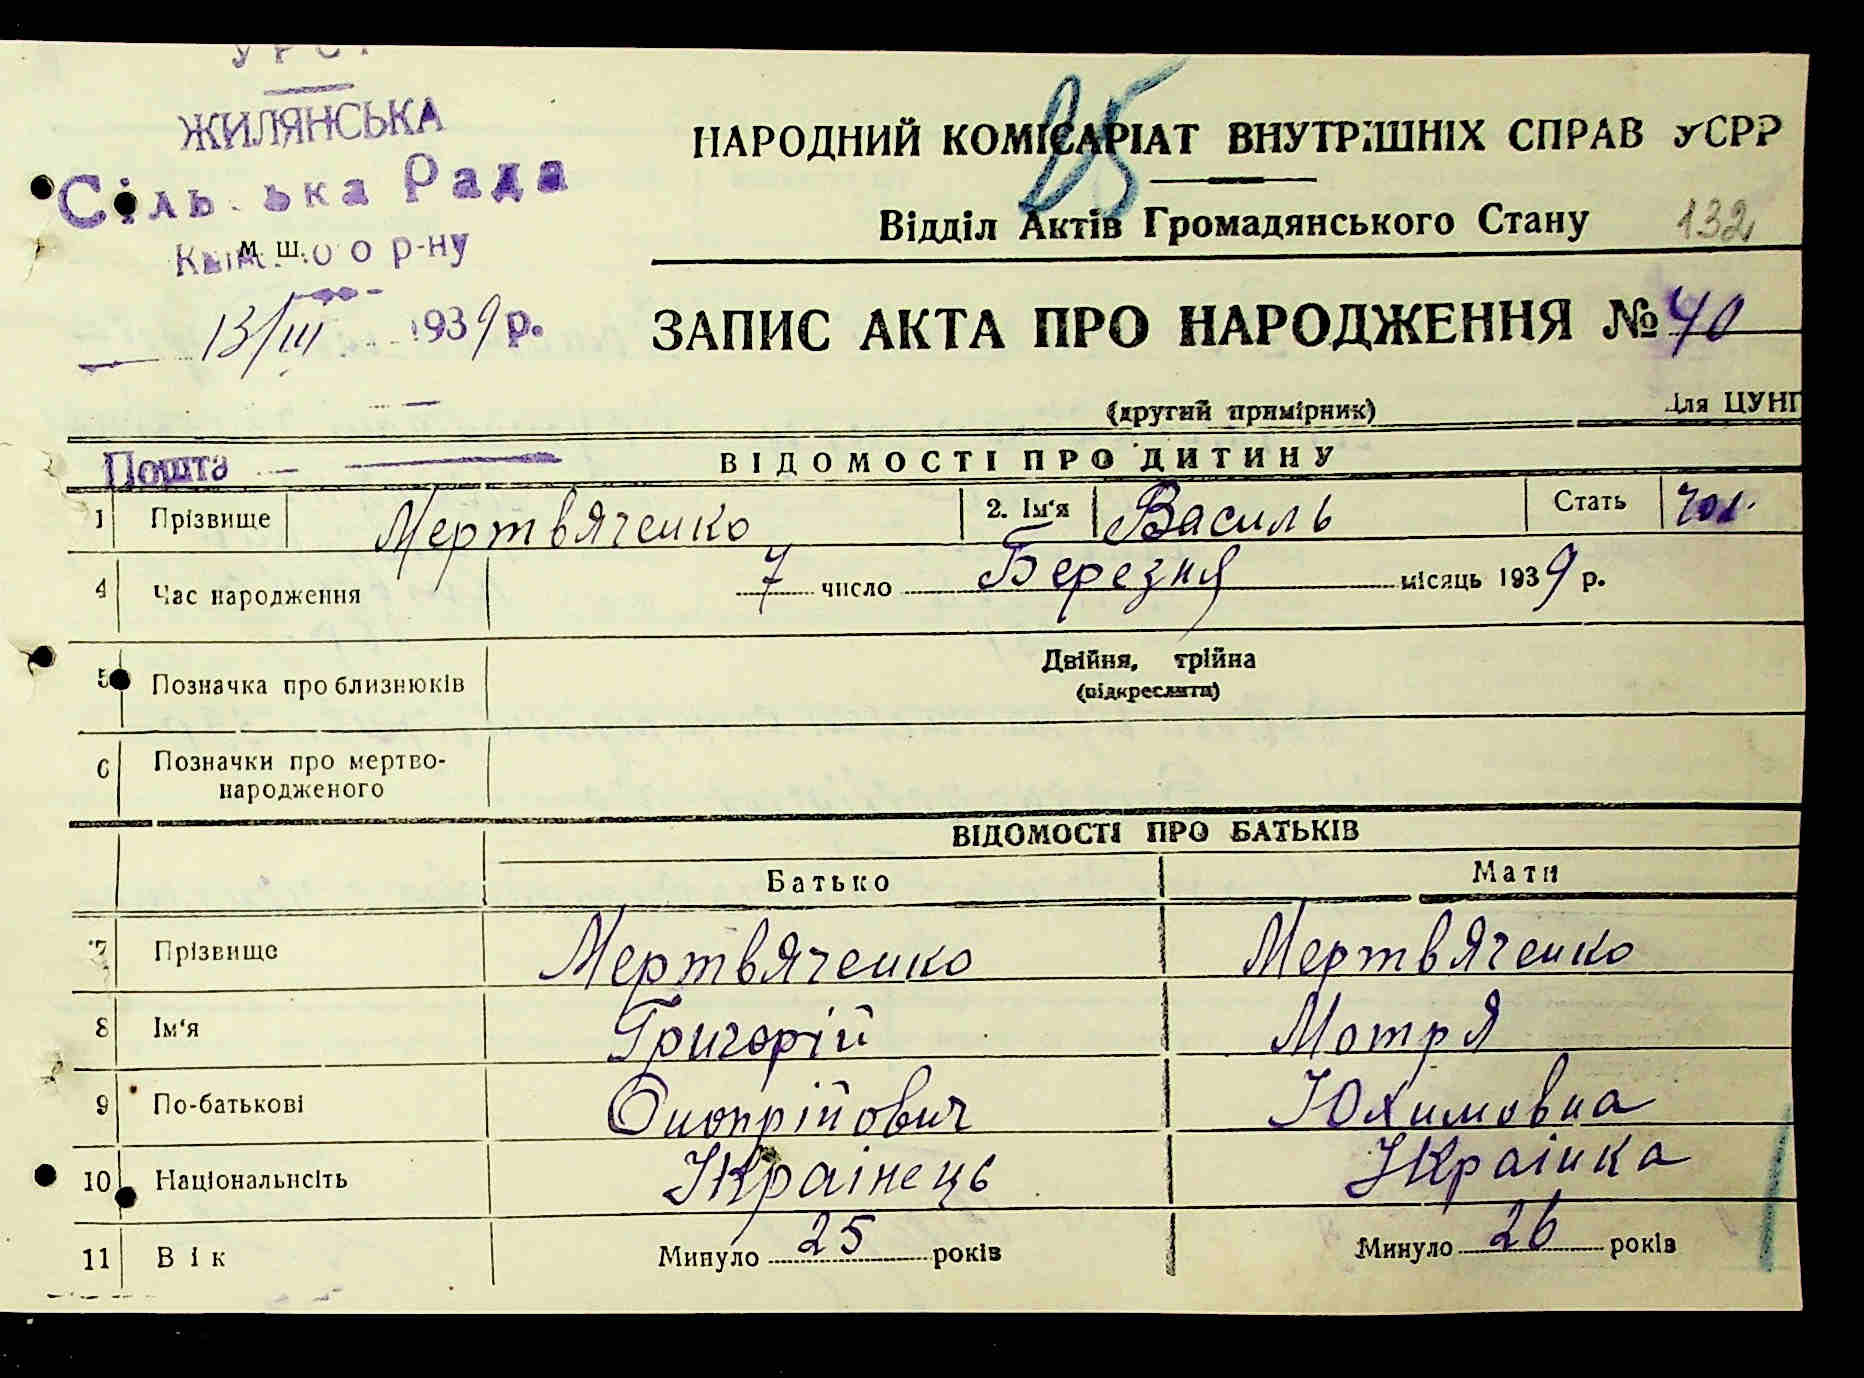 УРСР
ЖИЛЯНСЬКА
Сільська Рада
р-ну
м. ш.
13/III 1939 р.
Пошта
25
НАРОДНИЙ КОМІСАРІАТ ВНУТРІШНІХ СПРАВ УСРР
Відділ Актів Громадянського Стану
132
ЗАПИС АКТА ПРО НАРОДЖЕННЯ № 40
(другий примірник) Для ЦУНГ
ВІДОМОСТІ ПРО ДИТИНУ
1 Прізвище Мертвяченко 2. Ім'я Василь Стать чол.
4 Час народження 7 число Березня місяць 1939 р.
5 Позначка про близнюків Двійня, трійна
(підкреслити)
6 Позначки про мертво-
народженого
ВІДОМОСТІ ПРО БАТЬКІВ
Батько Мати
7 Прізвище Мертвяченко Мертвяченко
8 Ім'я Григорій Мотря
9 По-батькові Онопрійович Юхимовна
10 Національність Українець Українка
11 Вік Минуло 25 років Минуло 26 років